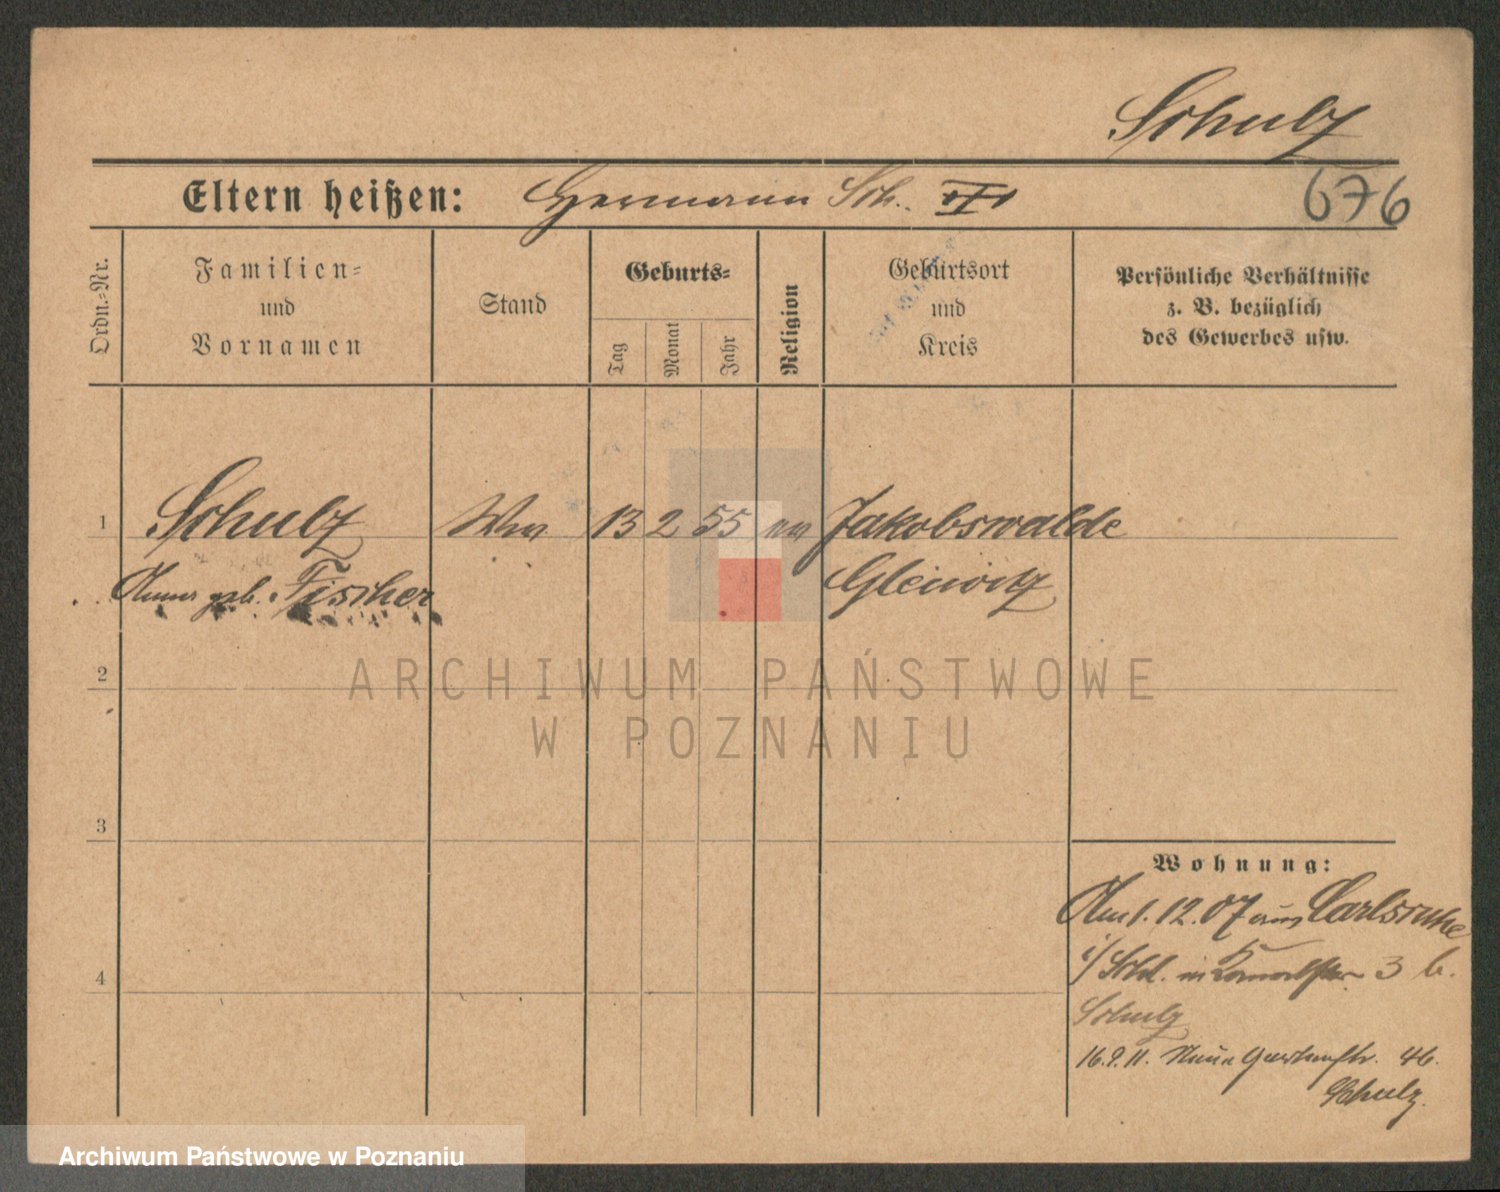 Schulz
Eltern heißen: Hermann Sch. III
676
Ordn.-Nr.
Familien-
und
Vornamen
Stand
Geburts-
Tag
Monat
Jahr
Religion
Geburtsort
und
Kreis
Persönliche Verhältnisse
z. B. bezüglich
des Gewerbes usw.
1 Schulz Ww 13 2 55 ev Jakobswalde
Anna geb. Fischer Gleiwitz
2
3
4
Wohnung:
Am 1. 12. 07 aus Carlsruhe
i/ Schl. in 3 b.
Schulz
16.9.11. Neue Gartenstr. 46.
Schulz.
ARCHIWUM PAŃSTWOWE
W POZNANIU
Archiwum Państwowe w Poznaniu